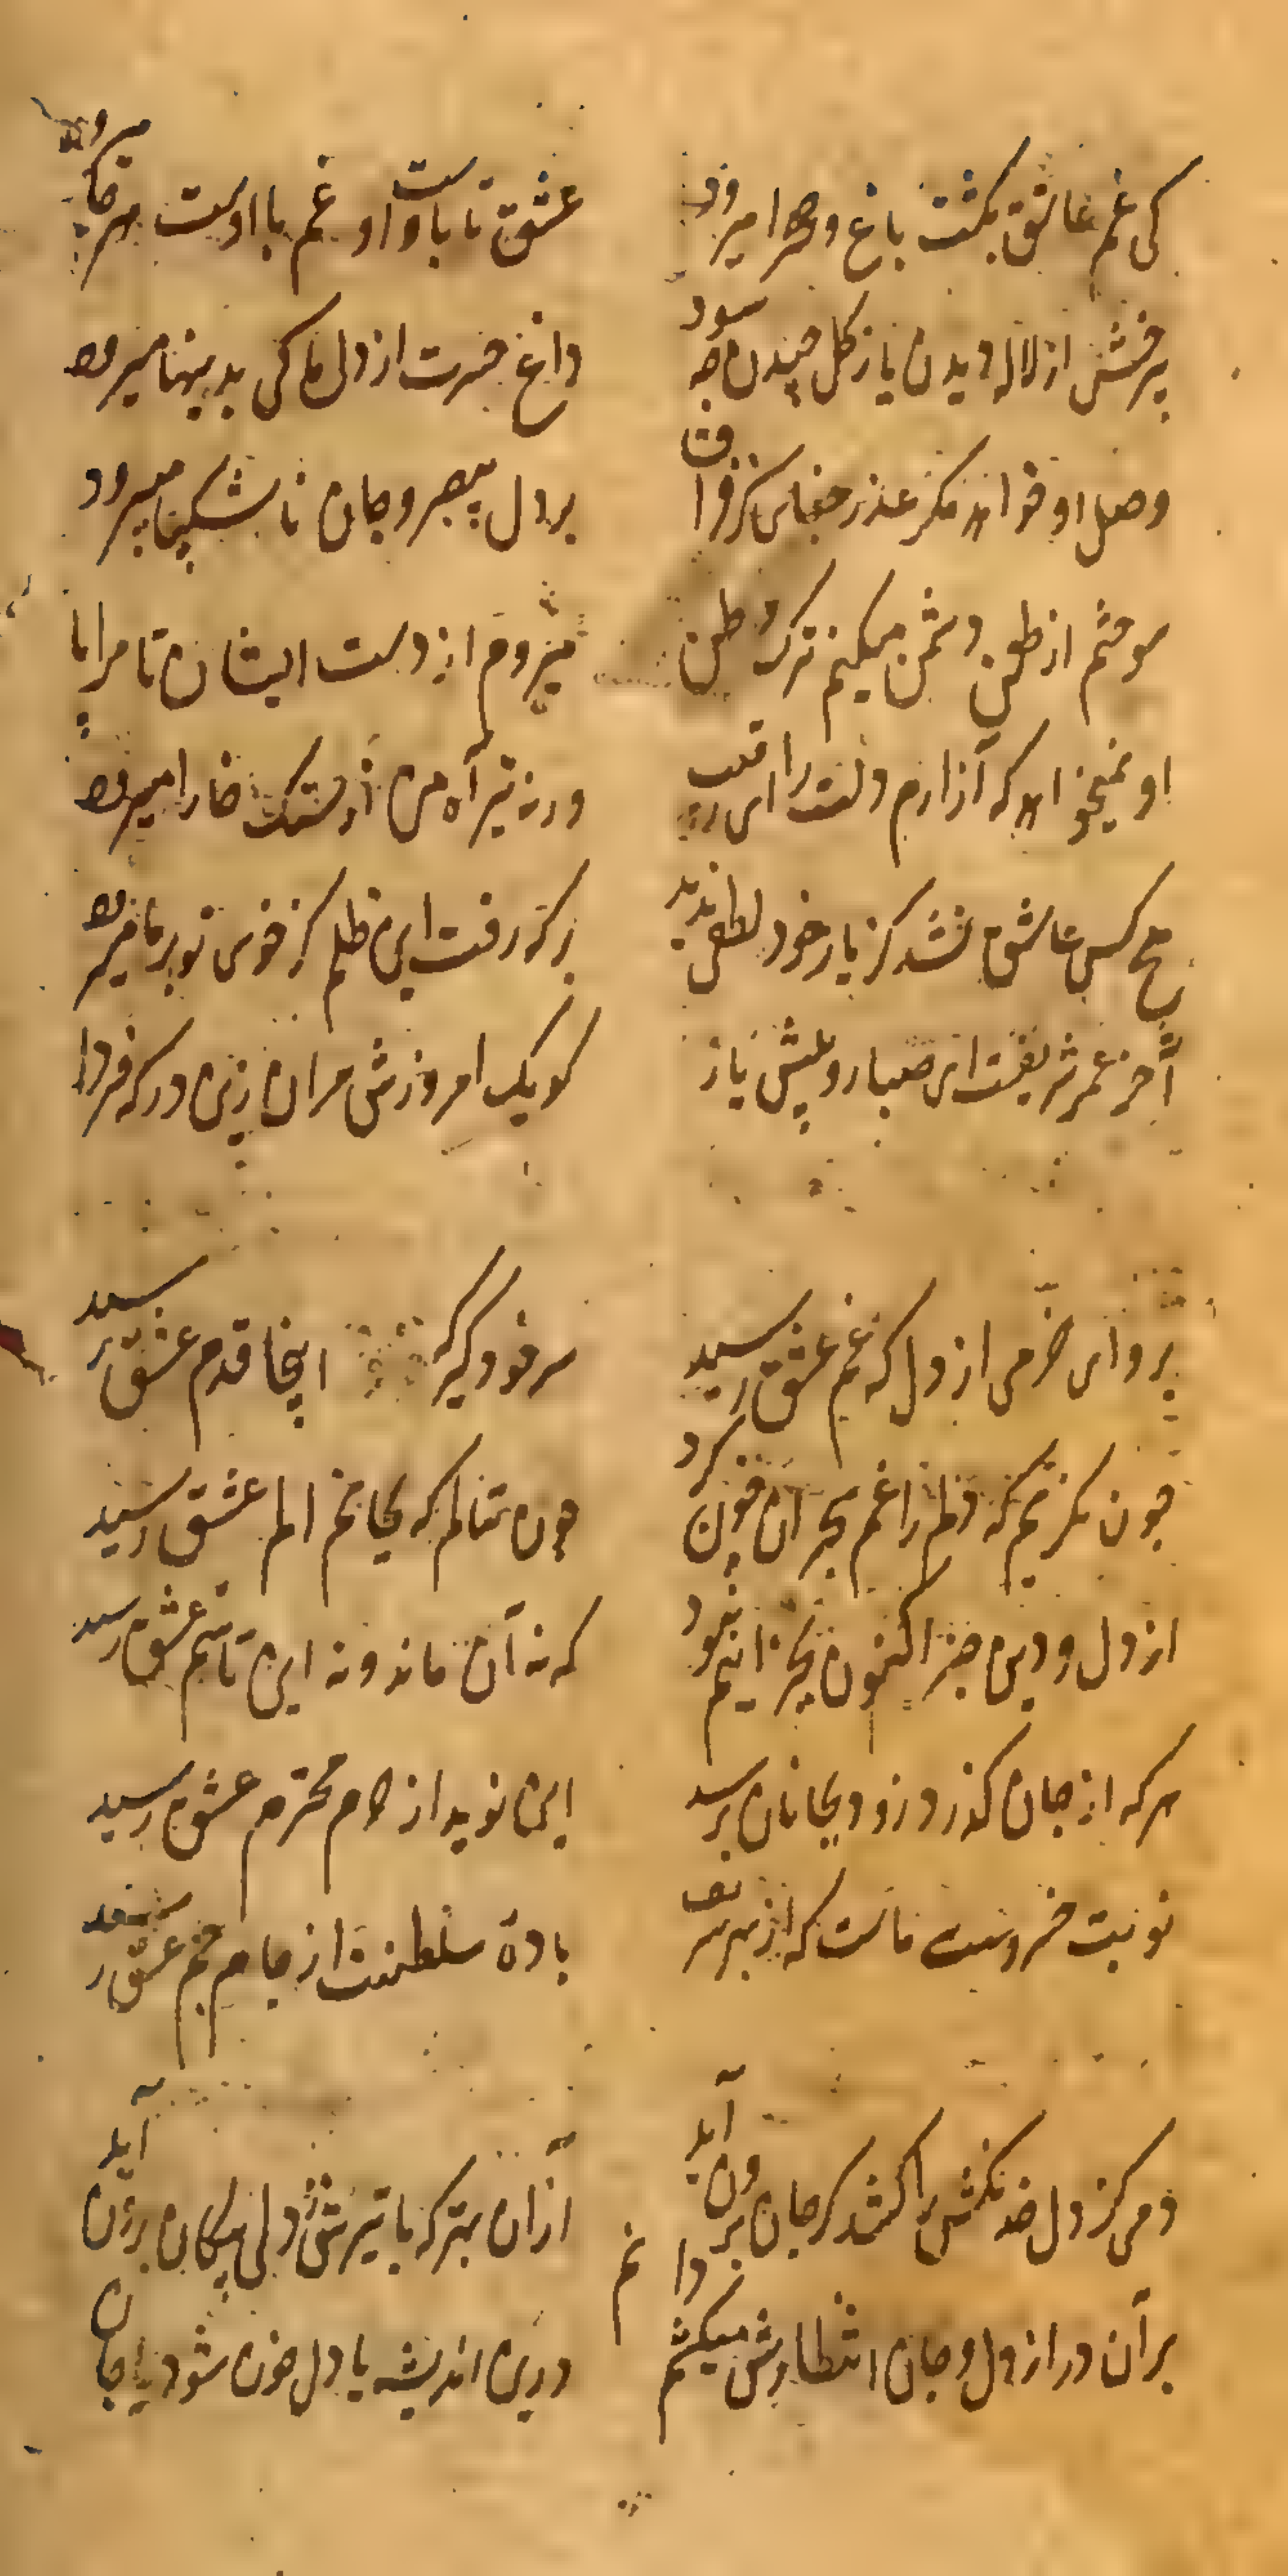 کی غم عاشق بکشت باغ و صحرا میرود
عشق تا با اوست او غم با اوست هر جا میرود
سود از لاله دیدن یا ز کل چیدن چه
داغ حسرت از دل ما کی بدینها میرود
وصل او خواهد مکر عذر جفای کز فراق
بر دل بیصبر و جان ناشکیبا میرود
سوختم از طعن دشمن میکنم ترک وطن
میروم از دست ایشان تا مرا پا
او نمیخواهد که آزارم دلت را ای رقیب
ورنه تیر آه من از سنک خارا میرود
هیچ کس عاشق نشد کز یار خود لطفی ندید
بر که رفت این ظلم کز خوی تو بر ما میرود
آخر عمر شریفست ای صبا رو پیش یار
کو یک امروزش مران زین در که فردا
برو ای خرمی از دل که غم عشق رسید
سر خود گیر که اینجا قدم عشق رسید
چون نکریم که دلم را غم هجران خون کرد
چون ننالم که بجانم الم عشق رسید
از دل و دین خبر اکنون بجز اینم نبود
که نه آن ماند و نه این تا ستم عشق رسید
هر که از جان کذرد زود بجانان برسد
این نوید از حرم محترم عشق رسید
نوبت خسروی ماست که از بهر شریف
باده سلطنت از جام جم عشق رسید
دمی کز دل خدنکش را کشد کر جان برون آید
از آن بهتر که با تیرش ز دل پیکان برون آید
بر آن در از دل و جان انتظارش میکشم دانم
درین اندیشه یا دل خون شود یا جان